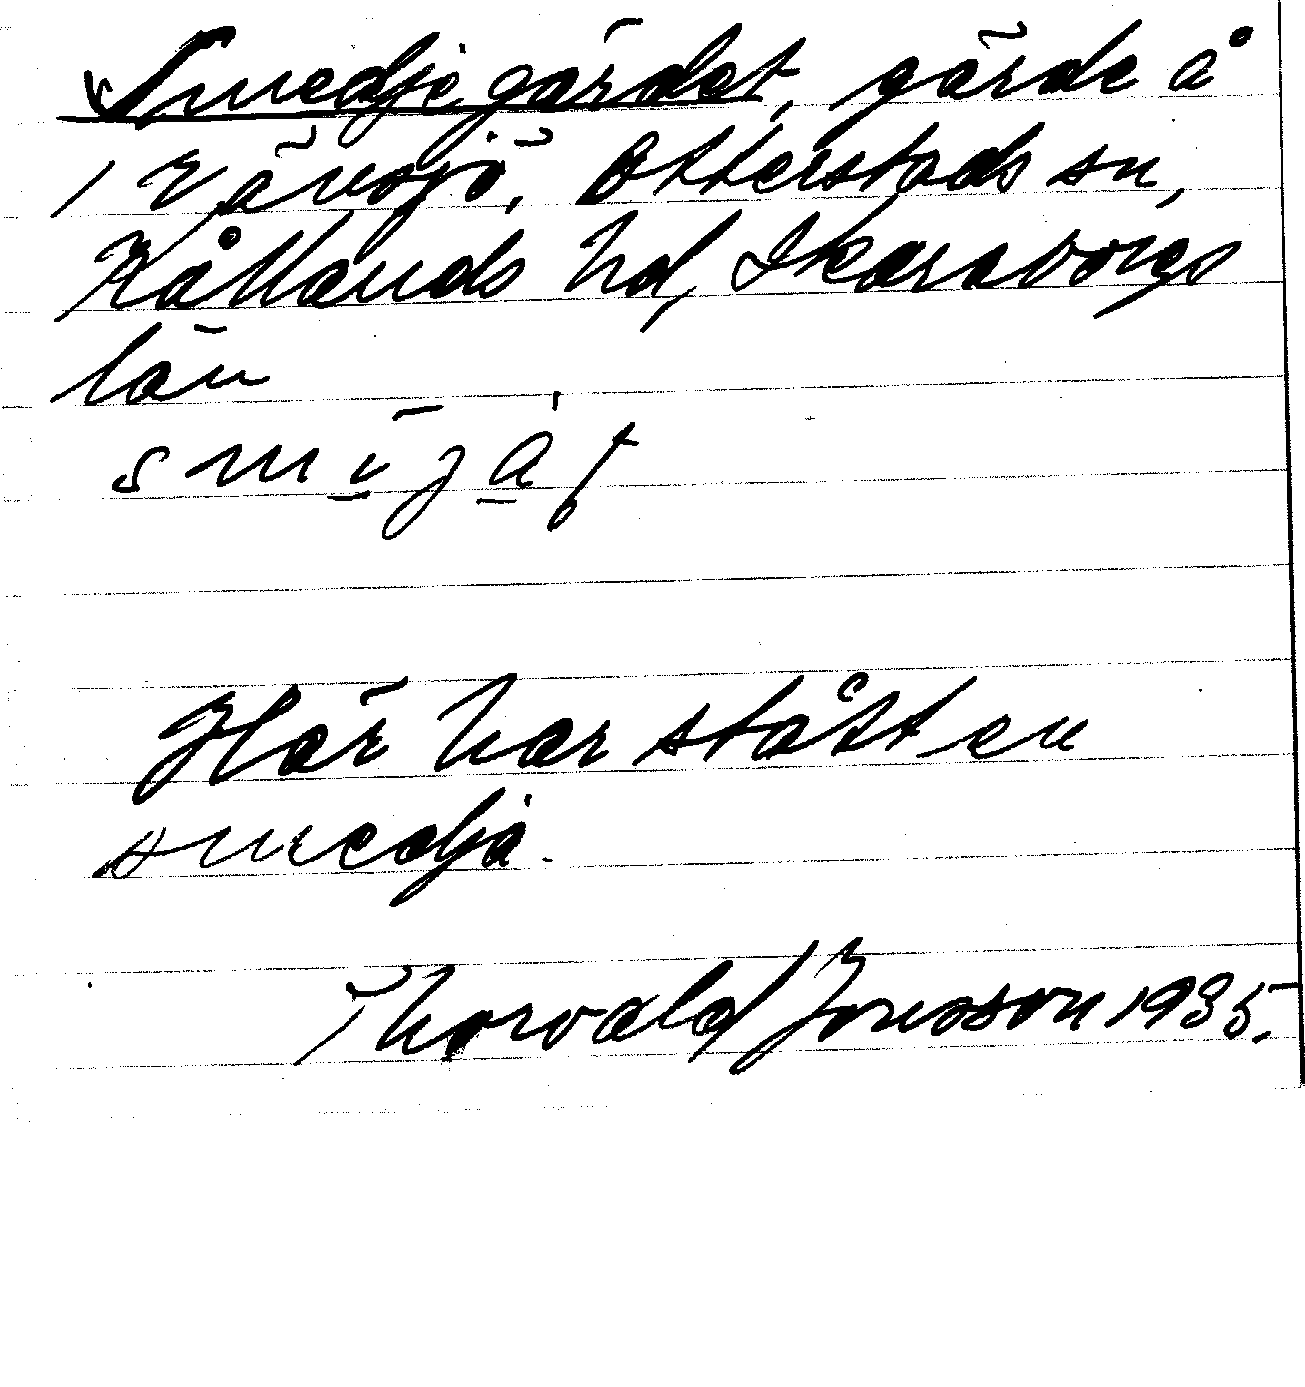 Smedjegärdet, gärde å
1 Rävsjö, Otterstads sn,
Kållands hd, Skaraborgs
län
Här har stått en
smedja.
Thorvald Jonsson 1935.